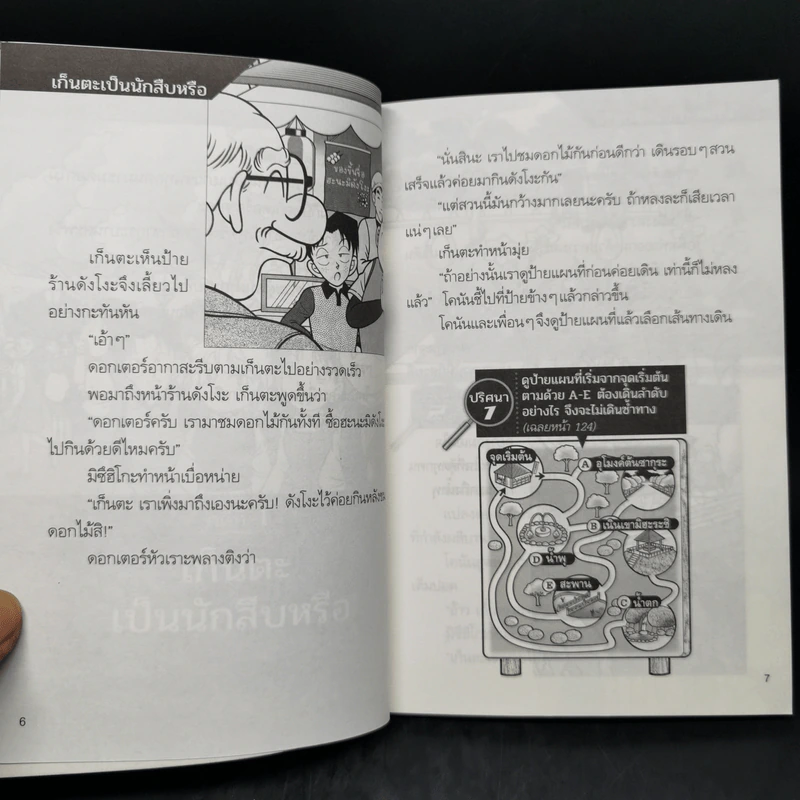 เก็นตะเป็นนักสืบหรือ
ของขึ้นชื่อ
ฮะนะมิดังโงะ
เก็นตะเห็นป้าย
ร้านดังโงะจึงเลี้ยวไป
อย่างกะทันหัน
“เอ้าๆ”
ดอกเตอร์อากาสะรีบตามเก็นตะไปอย่างรวดเร็ว
พอมาถึงหน้าร้านดังโงะ เก็นตะพูดขึ้นว่า
“ดอกเตอร์ครับ เรามาชมดอกไม้กันทั้งที ซื้อฮะนะมิดังโงะ
ไปกินด้วยดีไหมครับ”
มิซึฮิโกะทำหน้าเบื่อหน่าย
“เก็นตะ เราเพิ่งมาถึงเองนะครับ! ดังโงะไว้ค่อยกินหลังชม
ดอกไม้สิ!”
ดอกเตอร์หัวเราะพลางติงว่า
เก็นตะ
เป็นนักสืบหรือ
6
“นั่นสินะ เราไปชมดอกไม้กันก่อนดีกว่า เดินรอบๆ สวน
เสร็จแล้วค่อยมากินดังโงะกัน”
“แต่สวนนี้มันกว้างมากเลยนะครับ ถ้าหลงละก็เสียเวลา
แน่ๆ เลย”
เก็นตะทำหน้ามุ่ย
“ถ้าอย่างนั้นเราดูป้ายแผนที่ก่อนค่อยเดิน เท่านี้ก็ไม่หลง
แล้ว” โคนันชี้ไปที่ป้ายข้างๆ แล้วกล่าวขึ้น
โคนันและเพื่อนๆ จึงดูป้ายแผนที่แล้วเลือกเส้นทางเดิน
ปริศนา
1
ดูป้ายแผนที่เริ่มจากจุดเริ่มต้น
ตามด้วย A-E ต้องเดินลำดับ
อย่างไร จึงจะไม่เดินซ้ำทาง
(เฉลยหน้า 124)
จุดเริ่มต้น
A อุโมงค์ต้นซากุระ
B เนินเขามิฮะระชิ
D น้ำพุ
E สะพาน
C น้ำตก
7